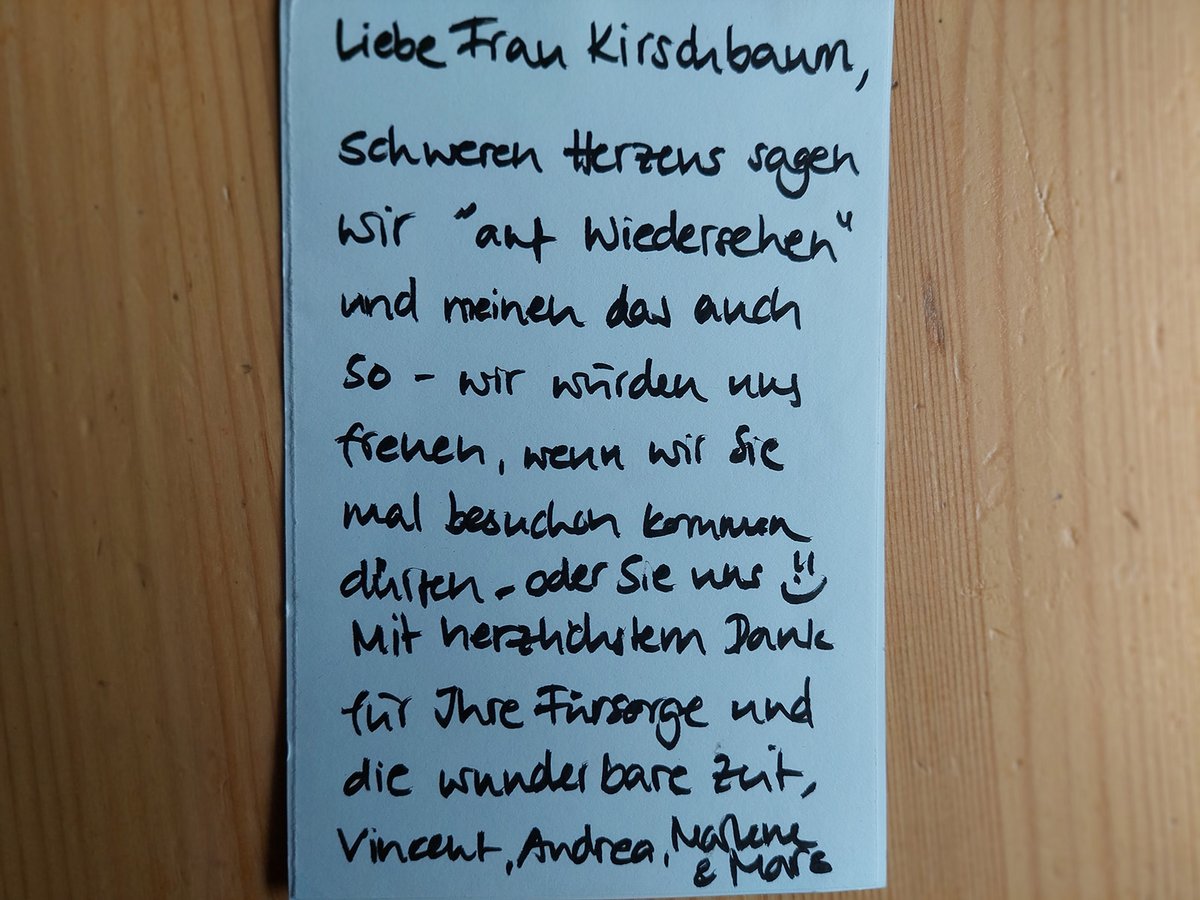 Liebe Frau Kirschbaum,
schweren Herzens sagen
wir "auf Wiedersehen"
und meinen das auch
so - wir würden uns
freuen, wenn wir Sie
mal besuchen kommen
dürfen - oder Sie uns :)
Mit herzlichstem Dank
für Ihre Fürsorge und
die wunderbare Zeit,
Vincent, Andrea, Marlene
& Mars